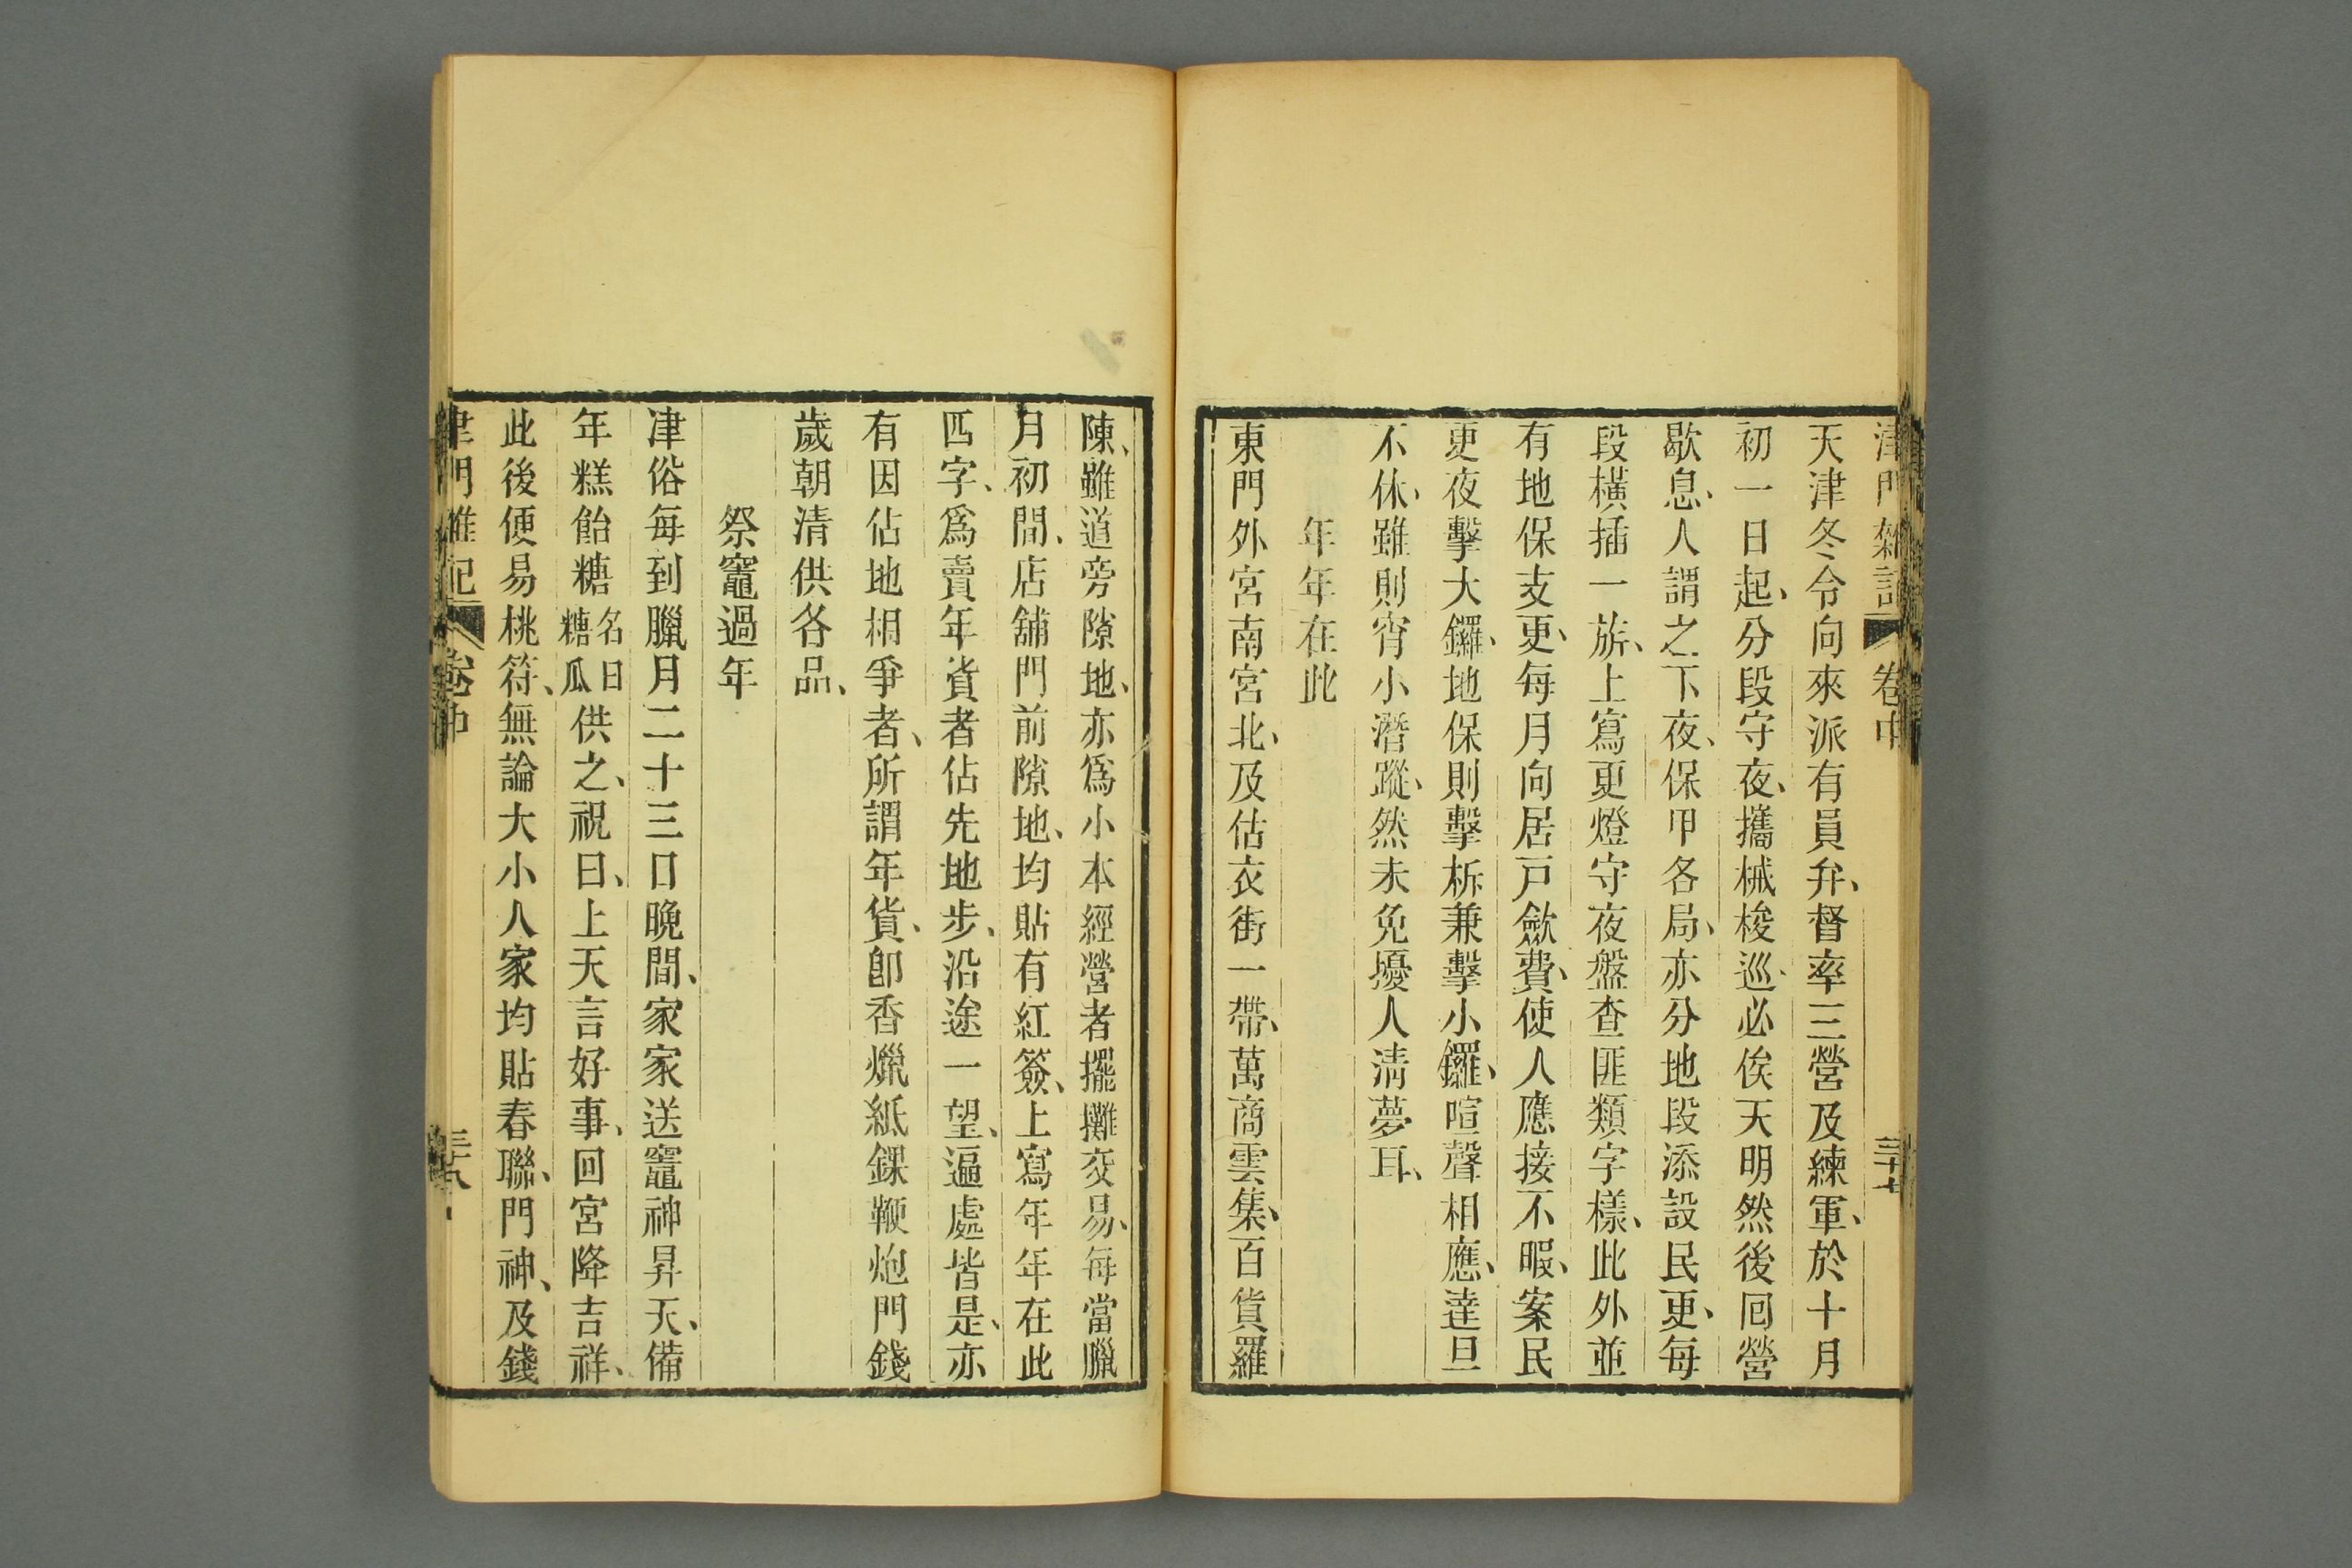 津門雜記 卷中 三十七
天津冬令向來派有員弁、督率三營及練軍、於十月
初一日起、分段守夜、攜械梭巡、必俟天明然後回營
歇息、人謂之下夜、保甲各局、亦分地段添設民更、每
段橫插一旂、上寫更燈守夜盤查匪類字樣、此外並
有地保支更、每月向居戸斂費、使人應接不暇、案民
更夜擊大鑼、地保則擊柝兼擊小鑼、喧聲相應、達旦
不休、雖則宵小潛蹤、然未免擾人淸夢耳、
年年在此
東門外宮南宮北、及估衣街一帶、萬商雲集、百貨羅
陳、雖道旁隙地、亦爲小本經營者擺攤交易、每當臘
月初間、店舖門前隙地、均貼有紅簽、上寫年年在此
四字、爲賣年貨者佔先地步、沿途一望、逼處皆是、亦
有因佔地相爭者、所謂年貨、卽香爉紙錁鞭炮門錢
歲朝清供各品、
祭竈過年
津俗每到臘月二十三日晚間、家家送竈神昇天、備
年糕飴糖名曰糖瓜供之、祝曰、上天言好事、回宮降吉祥、
此後便易桃符、無論大小人家均貼春聯、門神、及錢
津門雜記 卷中 三十八